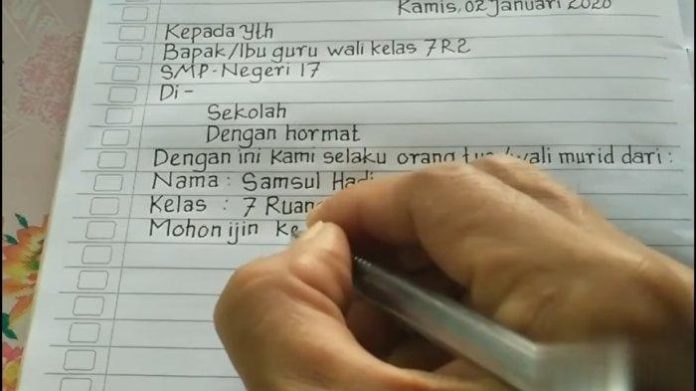 Kamis, 02 Januari 2020
Kepada Yth
Bapak/Ibu guru wali kelas 7R2
SMP-Negeri 17
Di -
Sekolah
Dengan hormat
Dengan ini kami selaku orang tua/wali murid dari :
Nama : Samsul Hadi
Kelas : 7 Ruang
Mohon ijin ke